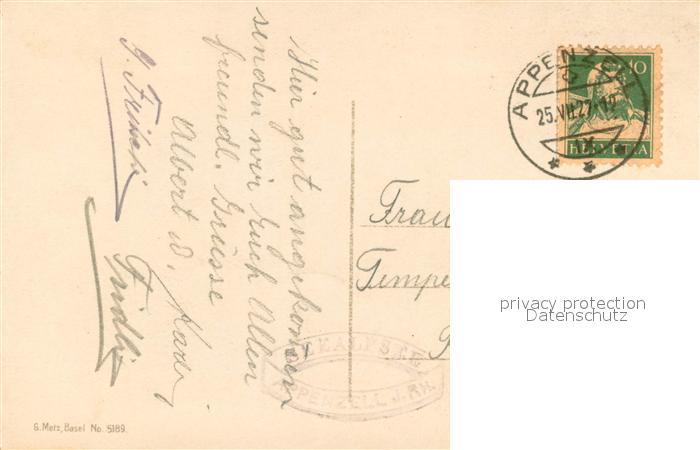 Hier gut angekomen
senden wir Euch Allen
freundl. Grüsse
Albert u.
Fridli
APPENZELL
25.VII.27-12
IX
10
HELVETIA
Frau
Tempe
APPENZELL J.RH.
G. Merz, Basel No. 5189.
privacy protection
Datenschutz